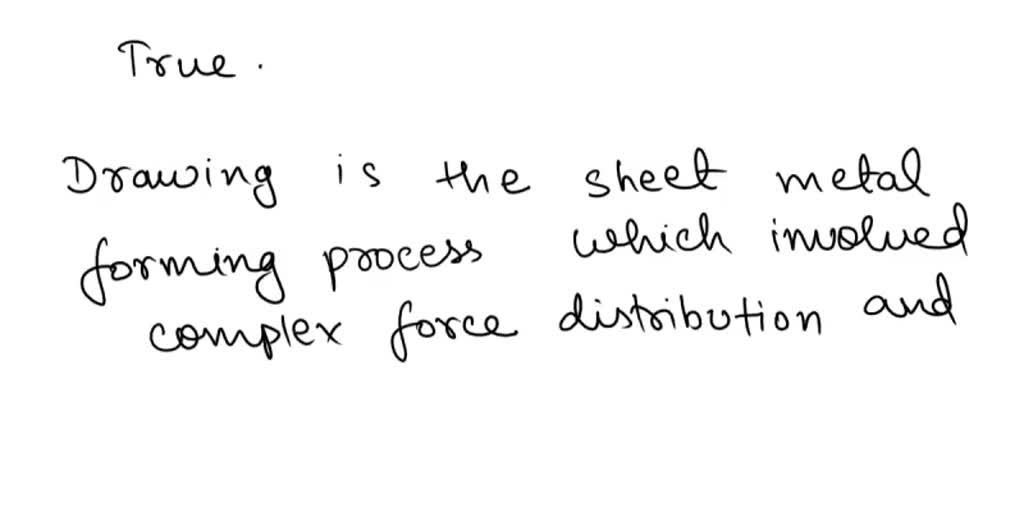 True.
Drawing is the sheet metal
forming process which involved
complex force distribution and